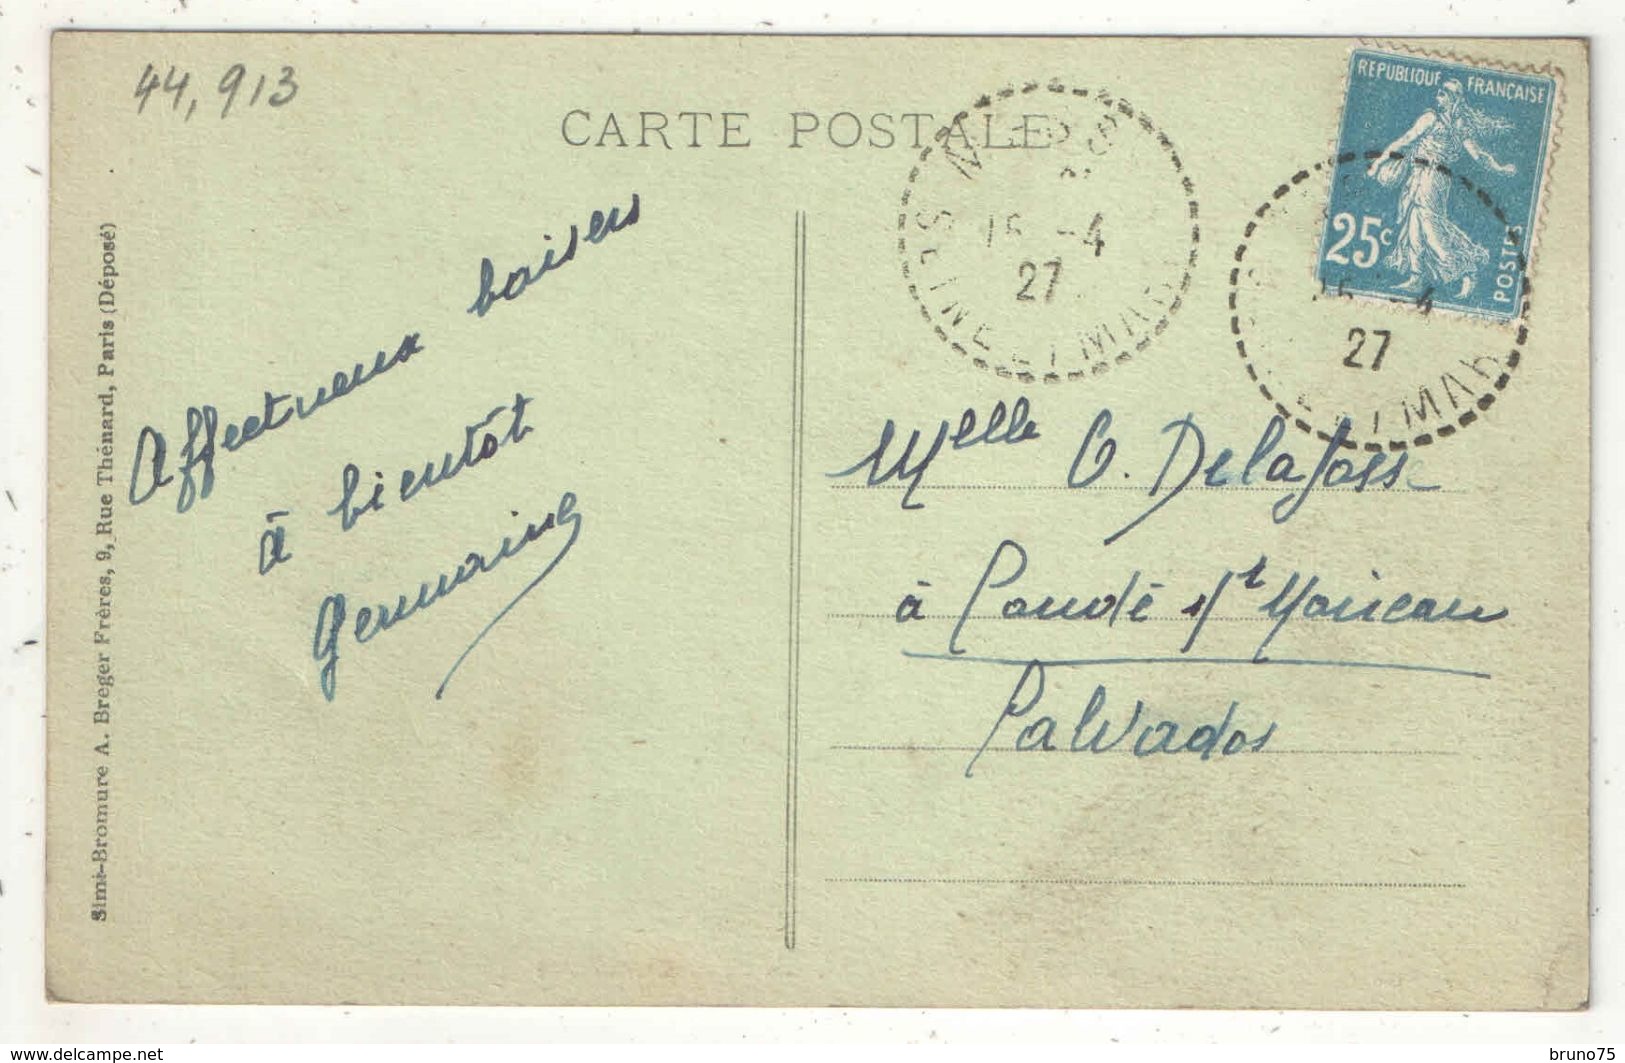 44,913
CARTE POSTALE
REPUBLIQUE FRANÇAISE
25c
POSTES
15 -4
27
SEINE ET MAR
15 -4
27
ET MAR
Affectueux baisers
à bientôt
Germaine
Melle O. Delafosse
à Condé s/
Calvados
Simi-Bromure A. Breger Frères, 9, Rue Thénard, Paris (Déposé)
www.delcampe.net
bruno75